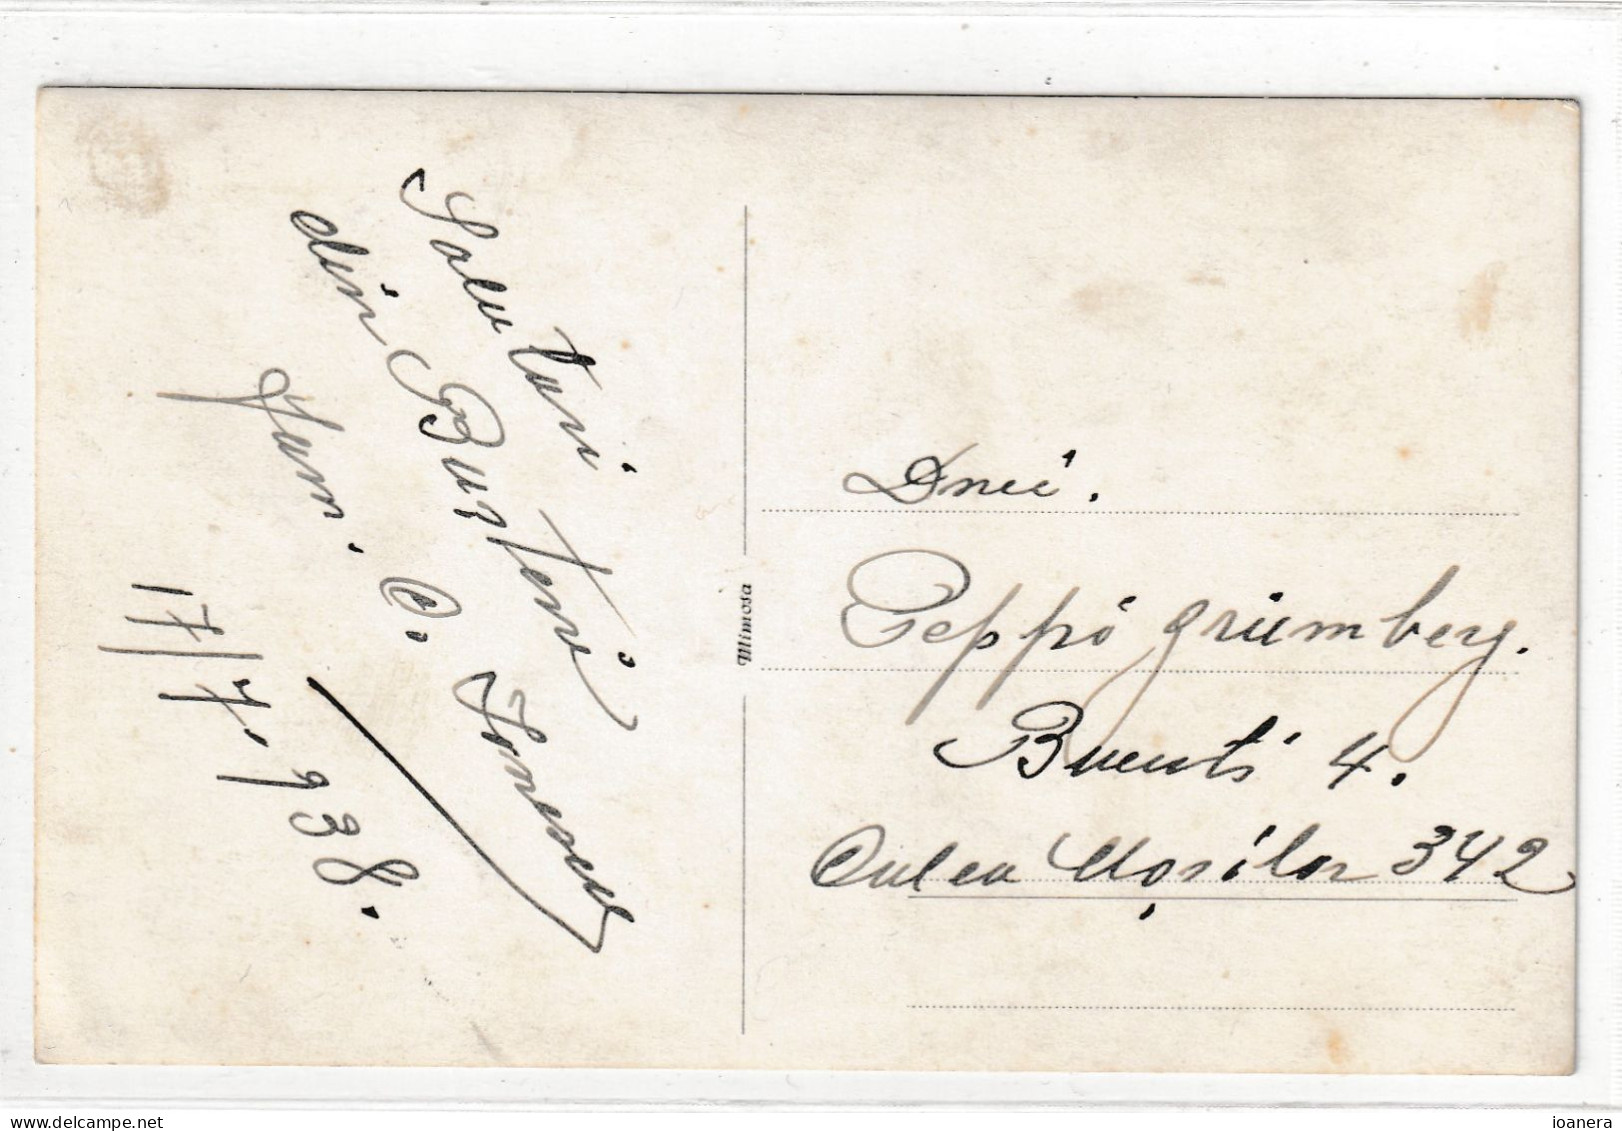 Salutari
din Buşteni
Fam. C. Ionescu
17/7. 938.
Mimosa
Dnei.
Peppi Grümberg.
Bucuti 4.
Calea Moşilor 342
delcampe.net
ioanera